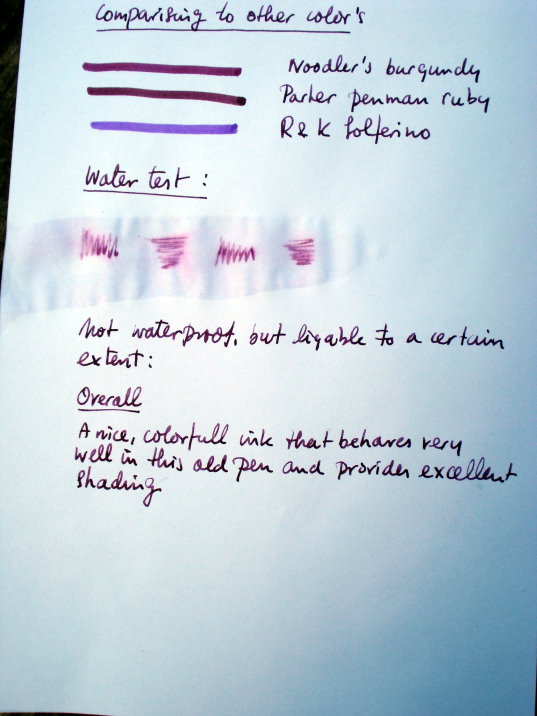 Comparising to other color's
Noodler's burgundy
Parker penman ruby
R & K Solferino
Water test :
Not waterproof, but ligable to a certain
extent:
Overall
A nice, colorfull ink that behaves very
well in this old pen and provides excellent
shading